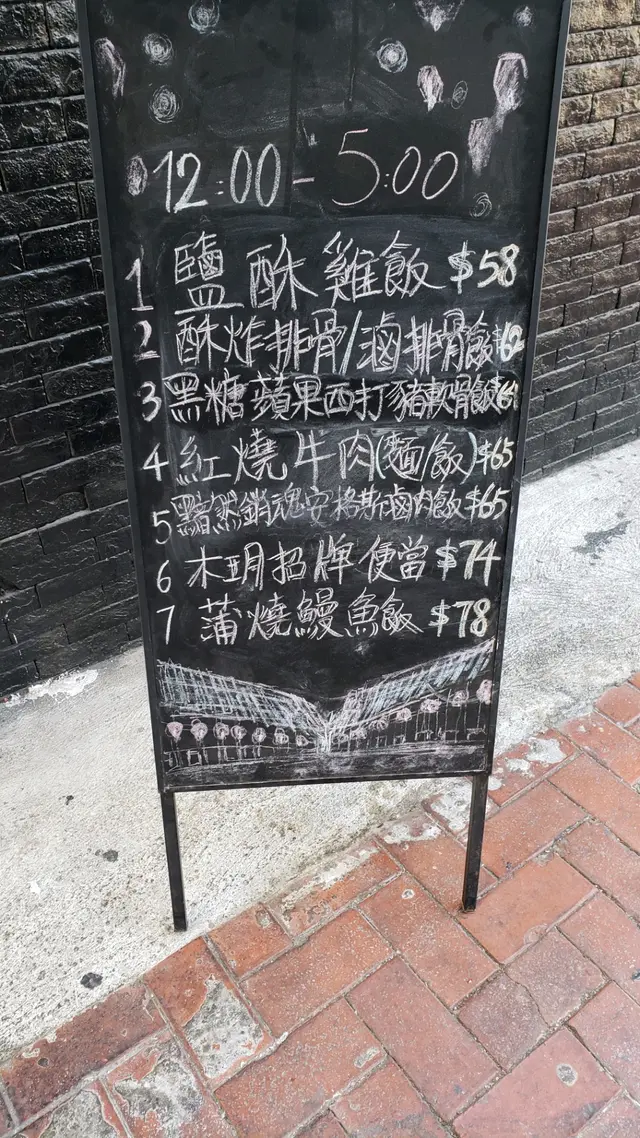 12:00-5:00
1 鹽酥雞飯 $58
2 酥炸排骨/滷排骨飯 $62
3 黑糖蘋果西打豬軟骨飯
4 紅燒牛肉(麵/飯) $65
5 黯然銷魂安格斯滷肉飯 $65
6 木玥招牌便當 $74
7 蒲燒鰻魚飯 $78